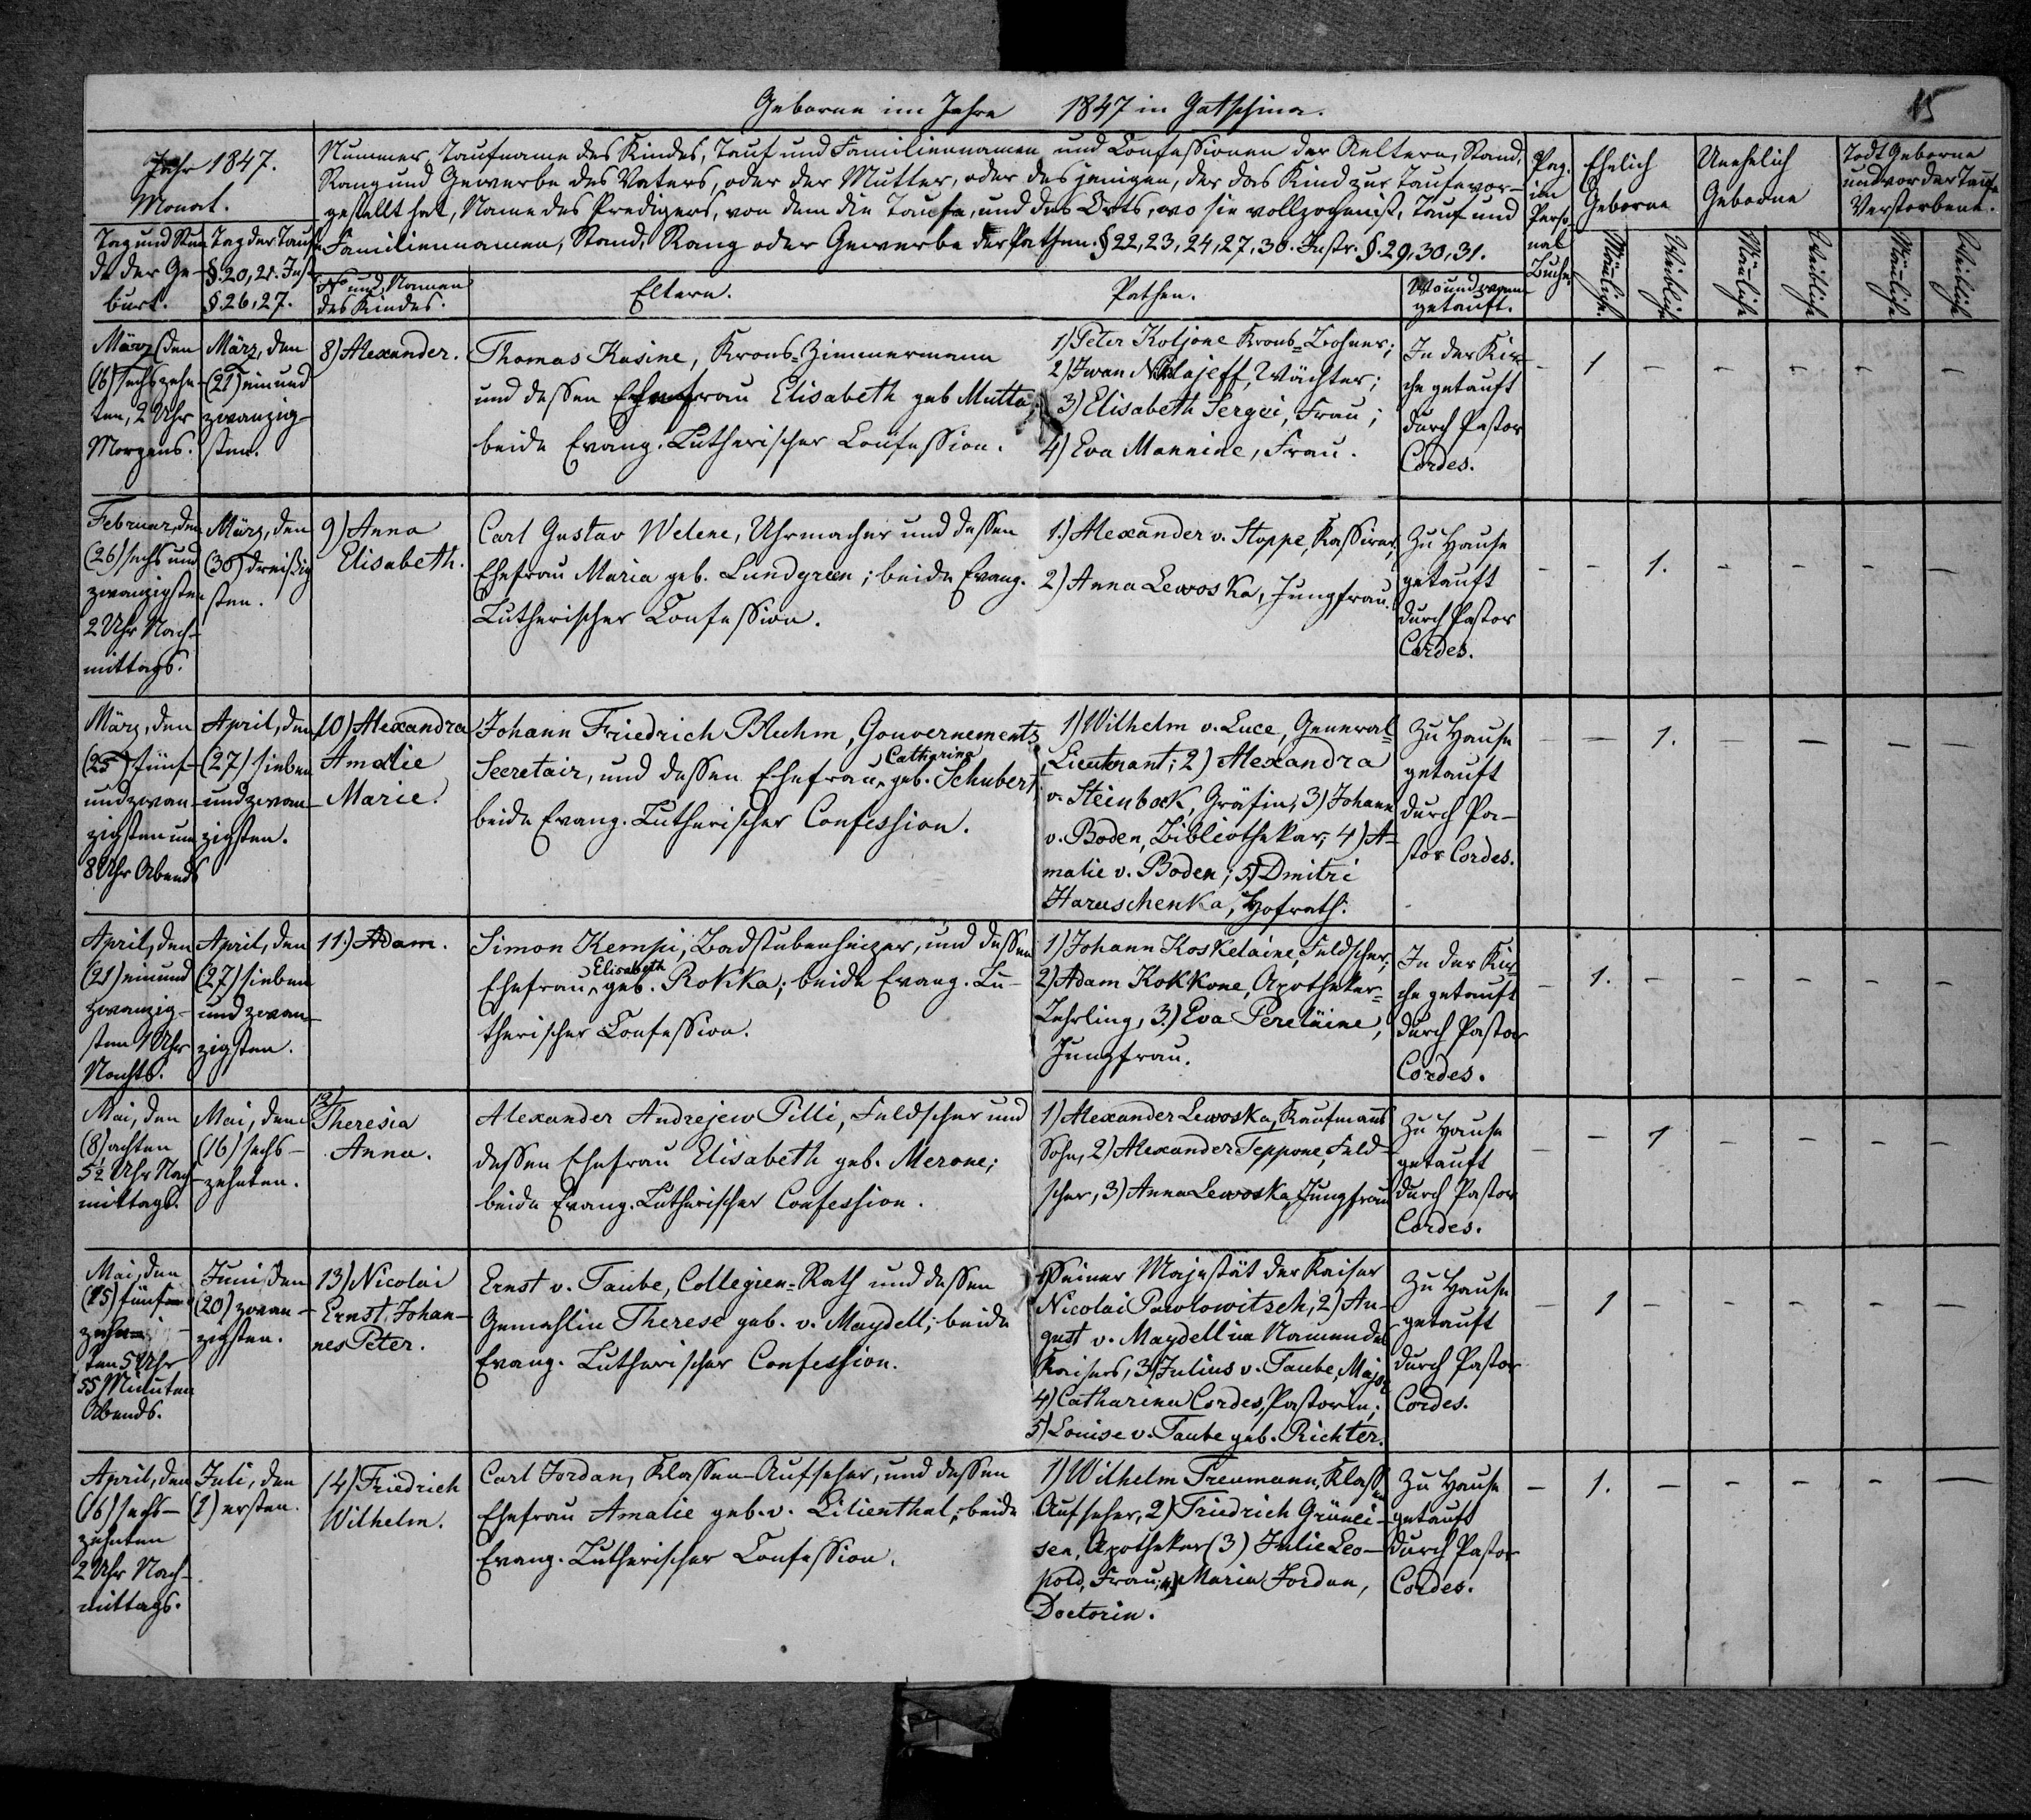 Geborne im Jahre 1847 in Gatschina.
15
Jahr 1847.
Monat.
Tag und Stun
de der Ge-
burt.
Tag der Taufe
§. 20, 21. Inst
§. 26, 27.
Nummer, Taufname des Kindes, Tauf und Familiennamen und Confessionen der Aeltern, Stand,
Rang und Gewerbe des Vaters, oder der Mutter, oder desjenigen, der das Kind zur Taufe vor-
gestellt hat, Name des Predigers, von dem die Taufe, und des Orts, wo sie vollzogen ist, Tauf und
Familiennamen, Stand, Rang oder Gewerbe der Pathen. § 22, 23, 24, 27, 30. Instr. §. 29, 30, 31.
No und Namen
des Kindes.
Eltern.
Pathen.
Wo und wann
getauft.
Pag.
im
Perso-
nal
Buche
Ehelich
Geborne
Unehelich
Geborne
Todt Geborne
und vor der Taufe
Verstorbene.
Männliche.
Weibliche
Männliche
Weibliche
Männliche
Weibliche
März, den
(16) sechszehn-
ten, 2 Uhr
Morgens.
März, den
(21) ein und
zwanzig-
sten.
8) Alexander.
Thomas Kusine, Krons-Zimmermann
und dessen Ehefrau Elisabeth geb Mutta
beide Evang. Lutherischer Confession.
1) Peter Koljone Krons-Bohner;
2) Iwan Nikolajeff, Wächter;
3) Elisabeth Sergei, Frau;
4) Eva Mannine, Frau.
In der Kir-
che getauft
durch Pastor
Cordes.
- 1 - - - - -
Februar, den
(26) sechs und
zwanzigsten
2 Uhr Nach-
mittags.
März, den
(30) dreißig
sten.
9) Anna
Elisabeth.
Carl Gustav Welene, Uhrmacher und dessen
Ehefrau Maria geb. Lundgreen; beide Evang.
Lutherischer Confession.
1.) Alexander v. Hoppe, Kassirer,
2) Anna Lewoska, Jungfrau.
Zu Hause
getauft
durch Pastor
Cordes.
- - 1. - - - -
März, den
(25) fünf-
und zwan-
zigsten um
8 Uhr Abends
April, den
(27) sieben
und zwan-
zigsten.
10) Alexandra
Amalie
Marie.
Johann Friedrich Bluhm, Gouvernements
Catharina
Secretair, und dessen Ehefrau geb. Schubert,
beide Evang. Lutherischer Confession.
1) Wilhelm v. Luce, General-
Lieutenant; 2) Alexandra
v. Steinbock, Gräfin; 3) Johann
v. Boden, Bibliothekar; 4) A-
malie v. Boden; 5) Dmitri
Haruschenka, Hofrath.
Zu Hause
getauft
durch Pa-
stor Cordes.
- - 1. - - - -
April, den
(21) ein und
zwanzig-
sten 1 Uhr
Nachts.
April, den
(27) sieben
und zwan-
zigsten.
11.) Adam.
Simon Kempi, Badstubenheizer, und dessen
Elisabeth
Ehefrau geb. Rokka; beide Evang. Lu-
therischer Confession.
1) Johann Koskelaine, Feldscher;
2) Adam Kokkone, Apotheker-
Lehrling, 3.) Eva Pereläine,
Jungfrau.
In der Kir-
che getauft
durch Pastor
Cordes.
- 1. - - - - -
Mai, den
(8) achten
5½ Uhr Nach-
mittags.
Mai, den
(16) sechs-
zehnten.
12)
Theresia
Anna.
Alexander Andrejew Pilli, Feldscher und
dessen Ehefrau Elisabeth geb. Merone;
beide Evang. Lutherischer Confession.
1) Alexander Lewoska, Kaufmanns
Sohn, 2) Alexander Teppone, Feld-
scher, 3) Anna Lewoska, Jungfrau
Zu Hause
getauft
durch Pastor
Cordes.
- - 1 - - - -
Mai, den
(15) fünf-
zehn-
ten 5 Uhr
55 Minuten
Abends.
Juni den
(20) zwan-
zigsten.
13) Nicolai
Ernst, Johan-
nes Peter.
Ernst v. Taube, Collegien-Rath und dessen
Gemahlin Therese geb. v. Maydell; beide
Evang. Lutherischer Confession.
1) Seiner Majestät der Kaiser
Nicolai Pawlowitsch; 2) Au-
gust v. Maydell im Namen des
Kaisers, 3) Julius v. Taube, Major
4) Catharina Cordes, Pastorin,
5) Louise v. Taube geb. Richter.
Zu Hause
getauft
durch Pastor
Cordes.
- 1 - - - - -
April, den
(16) sechs-
zehnten
2 Uhr Nach-
mittags.
Juli, den
(1) ersten.
14) Friedrich
Wilhelm.
Carl Jordan, Klassen-Aufseher, und dessen
Ehefrau Amalie geb. v. Lilienthal; beide
Evang. Lutherischer Confession.
1) Wilhelm Treumann, Klassen
Aufseher, 2) Friedrich Grünei-
sen, Apotheker (3) Julie Leo-
pold, Frau; 4) Maria Jordan,
Doctorin.
Zu Hause
getauft
durch Pastor
Cordes.
- 1. - - - - -